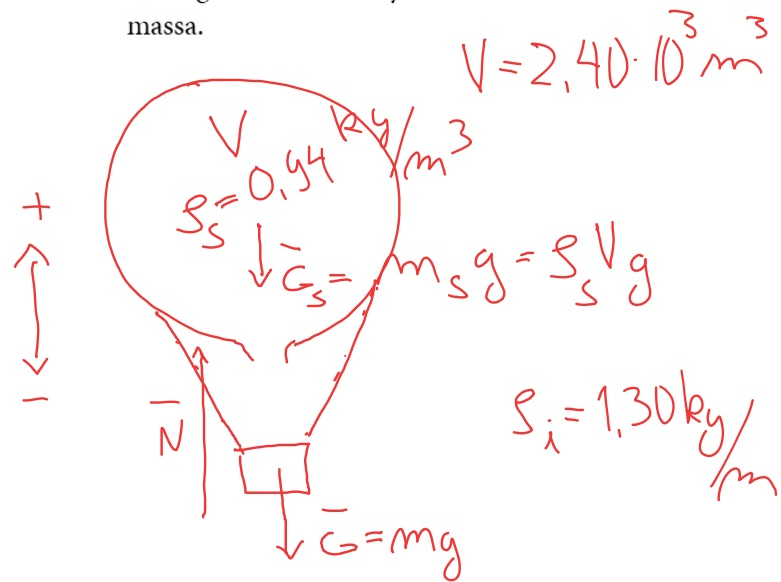 massa.
V = 2,40·10³ m³
V
ρₛ = 0,94 kg/m³
+
Ḡₛ = mₛg = ρₛVg
−
ρᵢ = 1,30 kg/m
N̄
Ḡ = mg